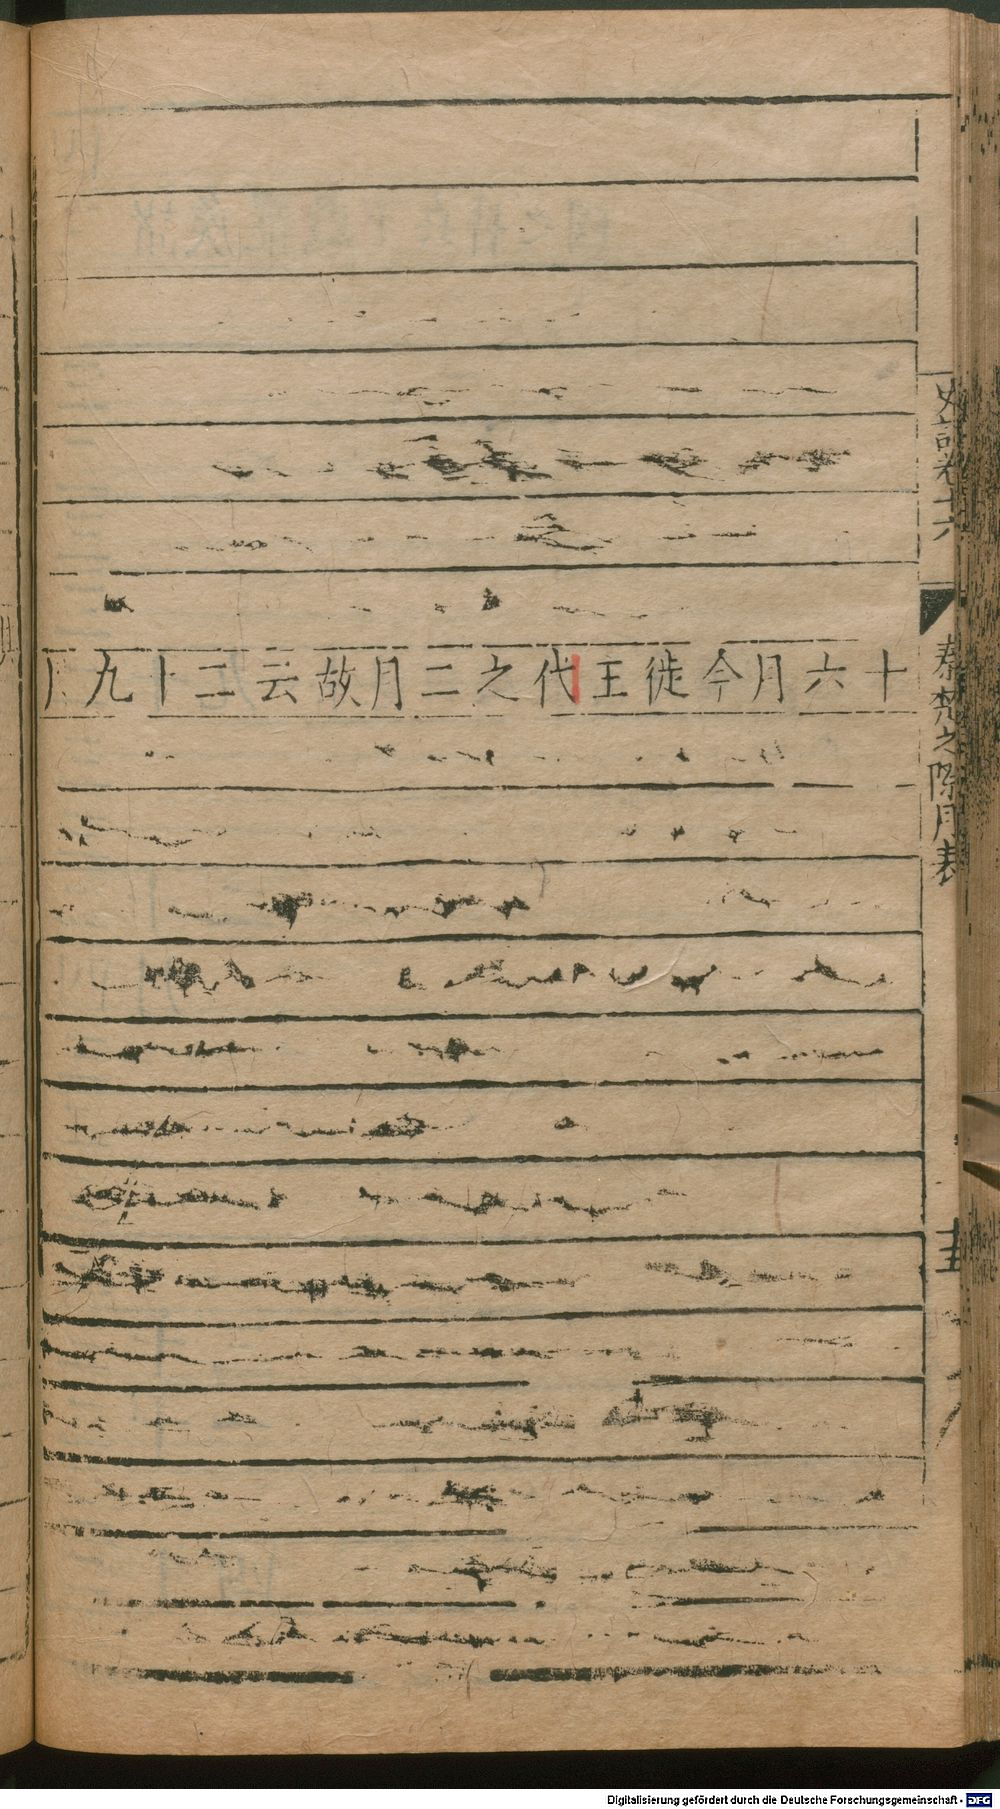 史記卷十六
秦楚之際月表
十六月今徒王代之二月故云二十九
Digitalisierung gefördert durch die Deutsche Forschungsgemeinschaft - DFG